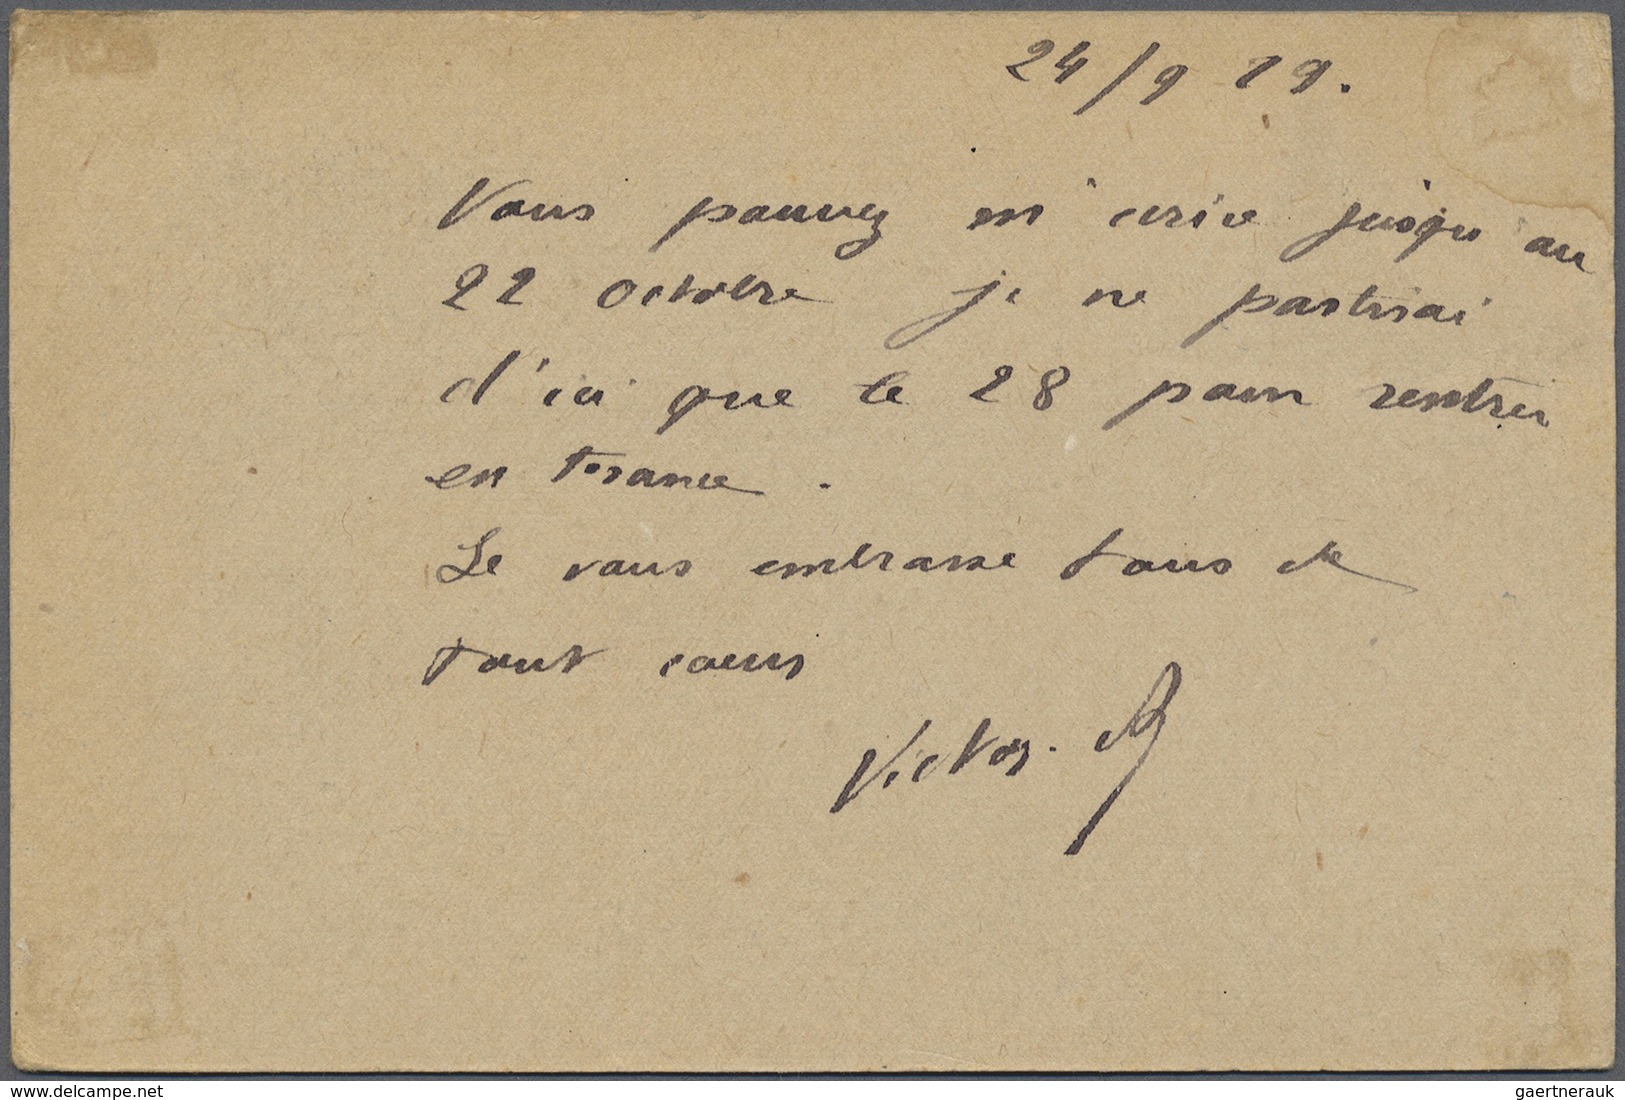 24/9 19.
Vous pouvez m'ecrire jusqu'au
22 octobre je ne partirai
d'ici que le 28 pour rentrer
en France.
Je vous embrasse tous de
tout coeur
Victor.
delcampe.net
gaertnerauk